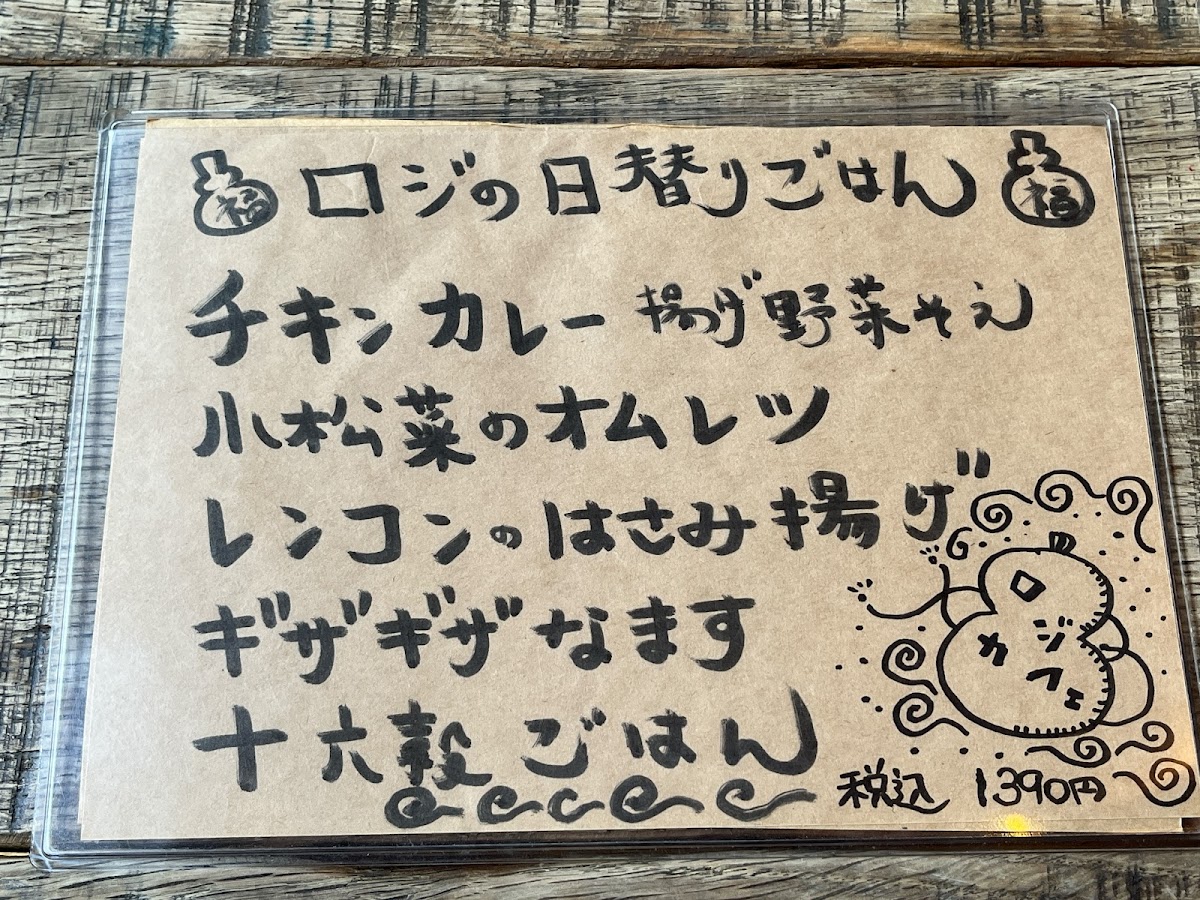 福 ロジの日替りごはん 福
チキンカレー 揚げ野菜そえ
小松菜のオムレツ
レンコンのはさみ揚げ
ギザギザなます
十六穀ごはん
ロジ
カフェ
税込 1390円